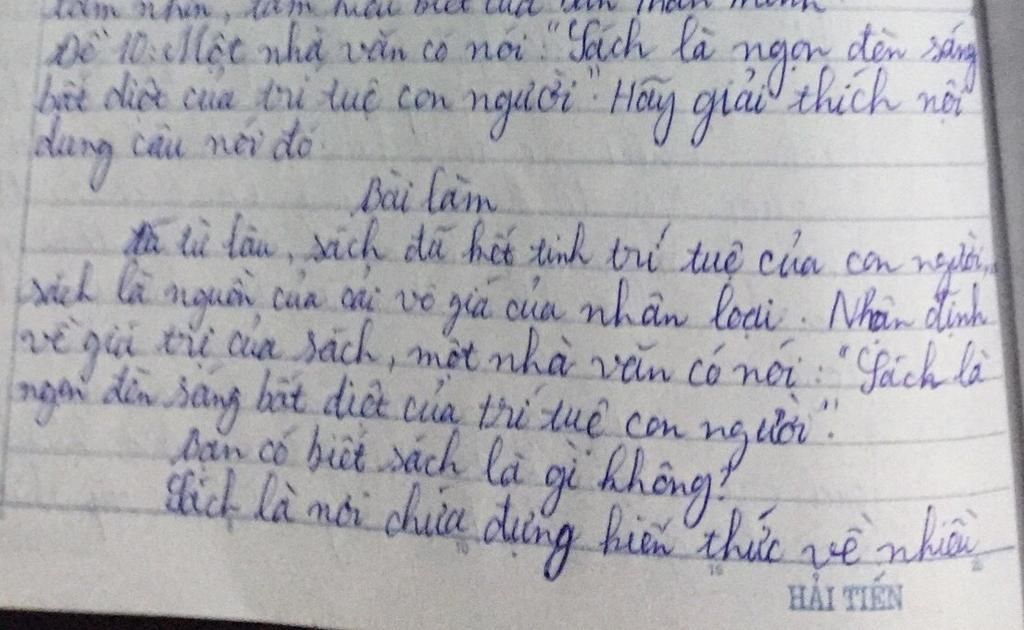 tầm nhìn, tầm hiểu biết của bản thân mình
Đề 10: Một nhà văn có nói: "Sách là ngọn đèn sáng
bất diệt của trí tuệ con người". Hãy giải thích nội
dung câu nói đó.
Bài làm
từ lâu, sách đã kết tinh trí tuệ của con người,
sách là nguồn của cải vô giá của nhân loại. Nhận định
về giá trị của sách, một nhà văn có nói: "Sách là
ngọn đèn sáng bất diệt của trí tuệ con người".
Bạn có biết sách là gì không?
Sách là nơi chứa đựng kiến thức về nhiều
HẢI TIẾN